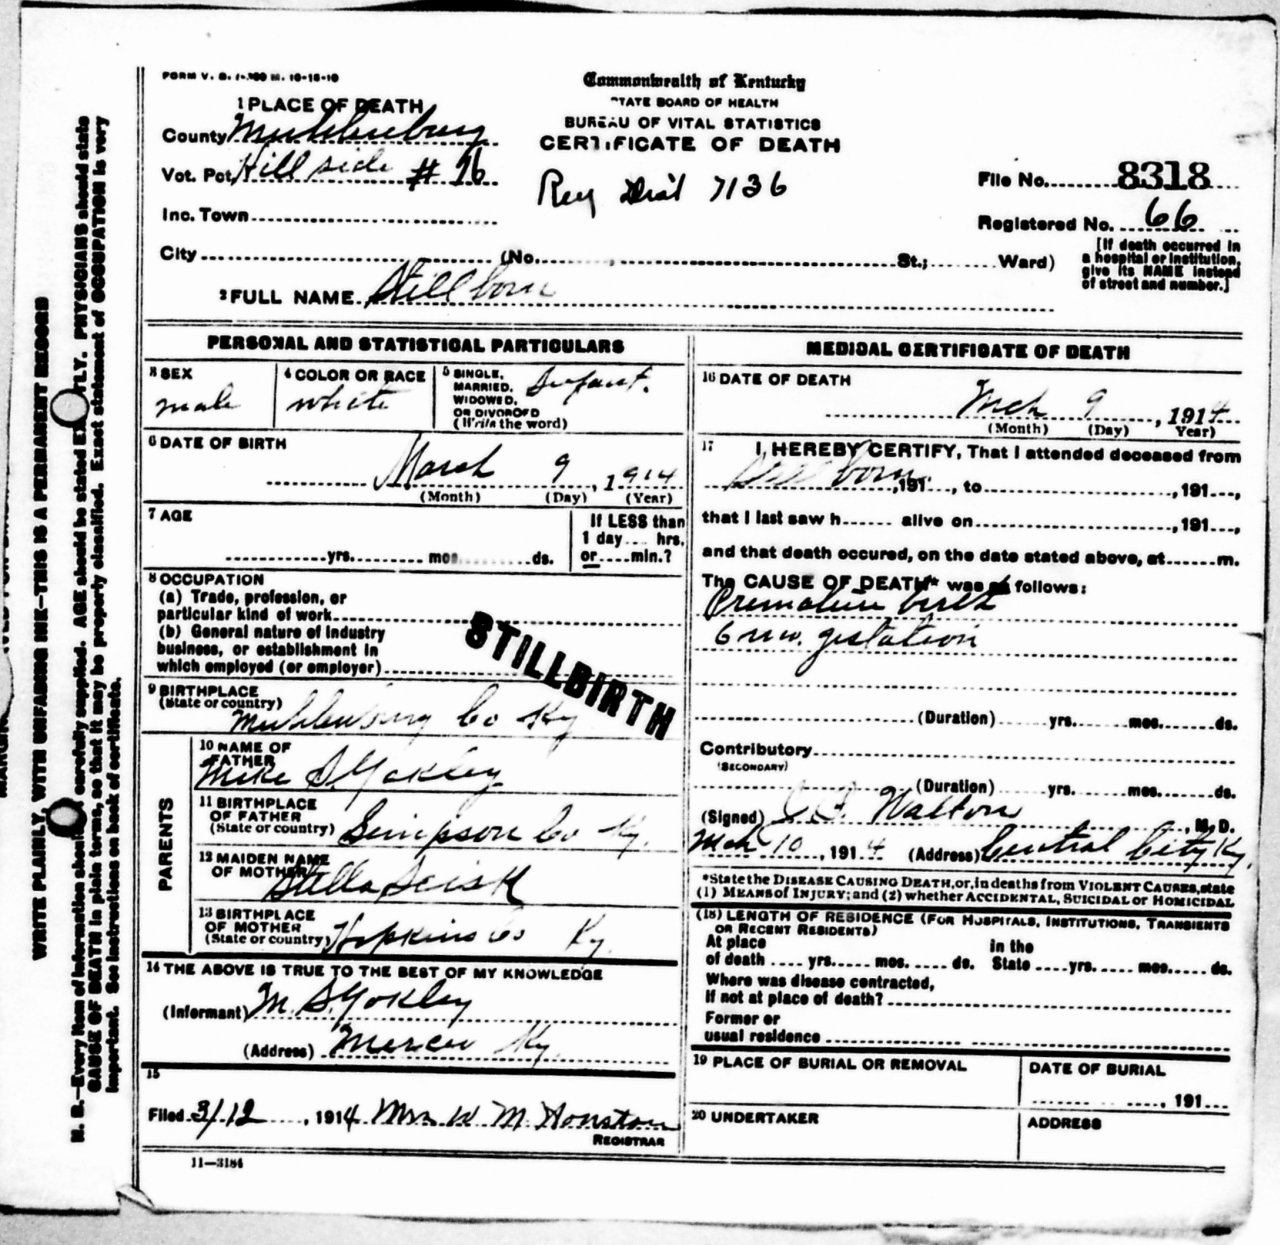 FORM V. S. 1-
10-15-10
Commonwealth of Kentucky
STATE BOARD OF HEALTH
BUREAU OF VITAL STATISTICS
CERTIFICATE OF DEATH
1 PLACE OF DEATH
County Muhlenburg
Vot. Pct. Hillside # 16
Inc. Town
Reg Dist 7136
File No. 8318
Registered No. 66
City (No. , St.; Ward)
[If death occurred in
a hospital or institution,
give its NAME instead
of street and number.]
2 FULL NAME Stillborn
PERSONAL AND STATISTICAL PARTICULARS
3 SEX
male
4 COLOR OR RACE
white
5 SINGLE,
MARRIED,
WIDOWED,
OR DIVORCED
(Write the word)
Infant.
6 DATE OF BIRTH
March 9, 1914
(Month) (Day) (Year)
7 AGE
yrs. mos. ds.
If LESS than
1 day ... hrs.
or ... min.?
8 OCCUPATION
(a) Trade, profession, or
particular kind of work
(b) General nature of industry
business, or establishment in
which employed (or employer)
STILLBIRTH
9 BIRTHPLACE
(State or country)
Muhlenburg Co Ky
PARENTS
10 NAME OF
FATHER
Mike S Yokley
11 BIRTHPLACE
OF FATHER
(State or country) Simpson Co Ky.
12 MAIDEN NAME
OF MOTHER
Stella Sisk
13 BIRTHPLACE
OF MOTHER
(State or country) Hopkins Co Ky.
14 THE ABOVE IS TRUE TO THE BEST OF MY KNOWLEDGE
(Informant) M. S. Yokley
(Address) Mercer Ky.
15
Filed 3/12, 1914 Mrs W. M. Houston
REGISTRAR
11—3184
MEDICAL CERTIFICATE OF DEATH
16 DATE OF DEATH
Mch 9, 1914
(Month) (Day) Year)
17 I, HEREBY CERTIFY, That I attended deceased from
Stillborn, 191..., to ..., 191...,
that I last saw h... alive on ..., 191...,
and that death occured, on the date stated above, at ... m.
The CAUSE OF DEATH* was as follows:
Premature birth
6 mo. gestation
(Duration) yrs. mos. ds.
Contributory
(SECONDARY)
(Duration) yrs. mos. ds.
(Signed) Walton, M. D.
Mch 10, 1914 (Address) Central City Ky.
*State the DISEASE CAUSING DEATH, or, in deaths from VIOLENT CAUSES, state
(1) MEANS of INJURY; and (2) whether ACCIDENTAL, SUICIDAL or HOMICIDAL
(18) LENGTH OF RESIDENCE (FOR HOSPITALS, INSTITUTIONS, TRANSIENTS
OR RECENT RESIDENTS)
At place
of death ... yrs. ... mos. ... ds.
in the
State ... yrs. ... mos. ... ds.
Where was disease contracted,
If not at place of death?
Former or
usual residence
19 PLACE OF BURIAL OR REMOVAL
DATE OF BURIAL
, 191...
20 UNDERTAKER
ADDRESS
WRITE PLAINLY, WITH UNFADING INK—THIS IS A PERMANENT RECORD
N. B.—Every item of information should be carefully supplied. AGE should be stated EXACTLY. PHYSICIANS should state
CAUSE OF DEATH in plain terms, so that it may be properly classified. Exact statement of OCCUPATION is very
important. See instructions on back of certificate.